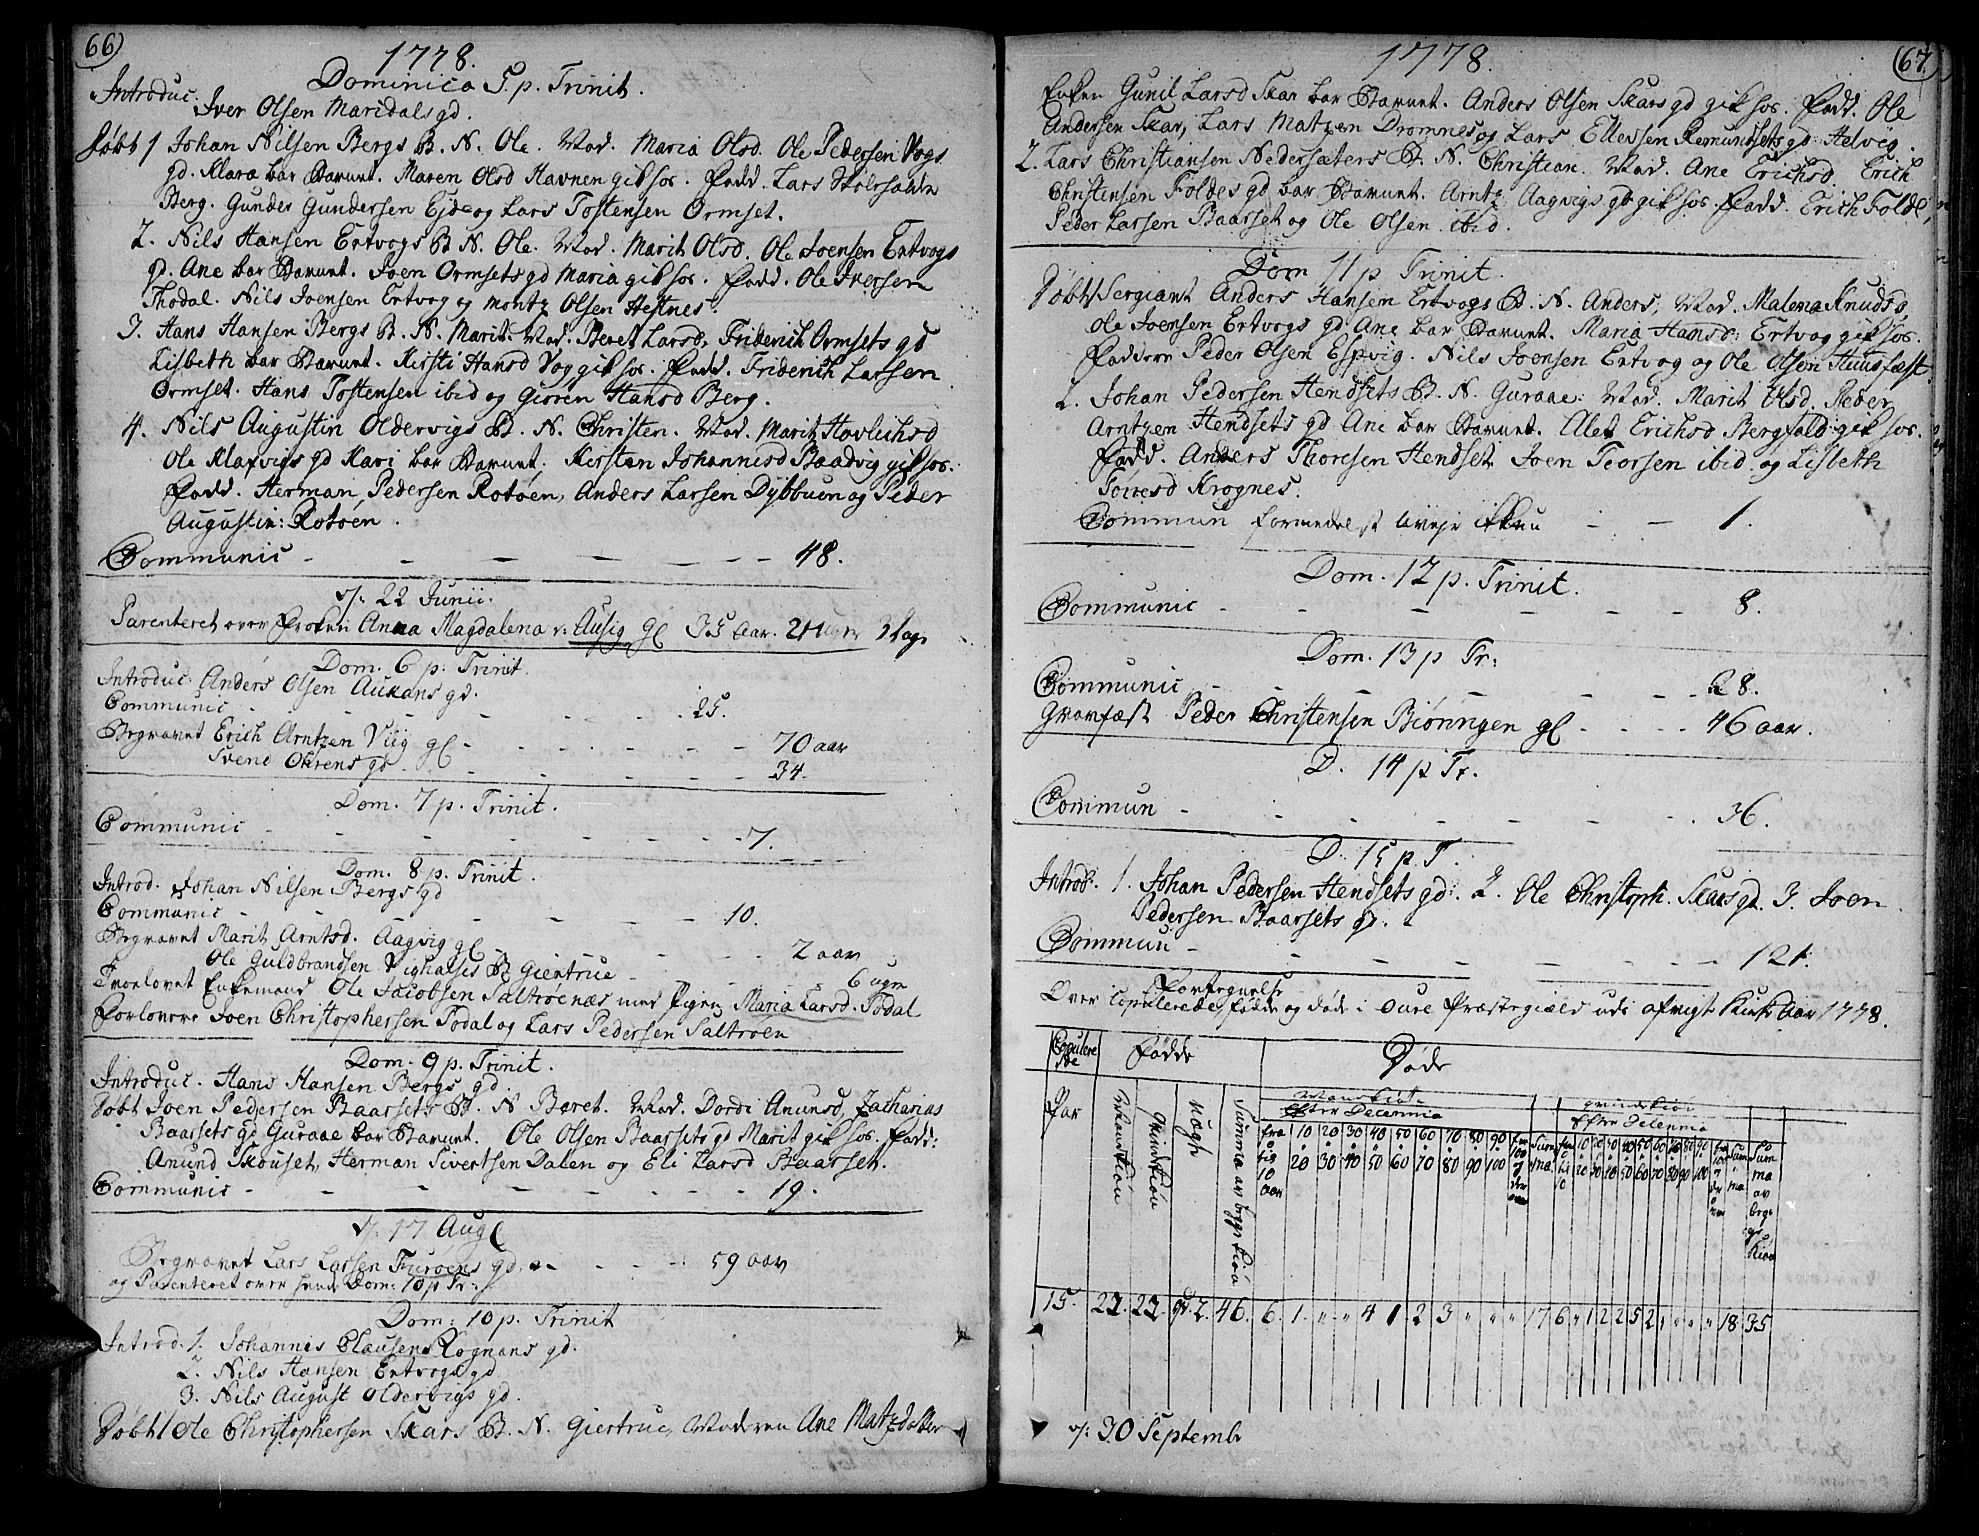 66)
1778.
Dominica 5. p. Trinit.
Introduc. Iver Olsen Maridals gd.
Døbt 1 Johan Nilsen Bergs B. N. Ole. Mod. Maria Olsd. Ole Pedersen Vogs
gd. Klara bar Barnet. Maren Olsd Havnen gik hos. Fadd. Lars
Berg. Gunder Gundersen Ejde og Lars Tostensen Ormset.
2. Nils Hansen Ertvogs B. N. Ole. Mod. Marit Olsd. Ole Joensen Ertvogs
gd. Ane bar Barnet. Joen Ormsets gd Maria gik hos. Fadd. Ole Iversen
Thodal. Nils Joensen Ertvog og Montz Olsen Hestnes.
3. Hans Hansen Bergs B. N. Marit. Mod. Beret Larsd. Friderich Ormsets gd
Lisbeth bar Barnet. Kirsti Hansd Vog gik hos. Fadd. Friderich Larsen
Ormset. Hans Tostensen ibid og Giøren Hansd Berg.
4. Nils Augustin Oldervigs B. N. Christen. Mod. Marit Hovleichsd
Ole Klafvigs gd Kari bar Barnet. Kirsten Johannesd Baadvig gik hos.
Fadd. Herman Pedersen Rotøen, Anders Larsen Dybbuen og Peder
Augustin: Rotøen.
Communic - - - - - 48.
d: 22 Junii.
Parenteret over Frøken Anna Magdalena v. Ausig gl 35 Aar. 21 Uger 3 Dage
Dom. 6 p. Trinit.
Introduc: Anders Olsen Aukans gd.
Communic - - - - - 25.
Begravet Erich Arntzen Viig gl - - - - 70 aar
Svend Ohrens gd - - - - 34.
Dom. 7 p. Trinit.
Communic - - - - - 7.
Dom. 8 p. Trinit.
Introd. Johan Nilsen Bergs gd
Communic - - - - - 10.
Begravet Marit Arntsd. Aagvig gl - - - 2 aar
Ole Guldbrandsen Vighalses B. Giertrue - - - 6 uger
Troelovet Enkemand Ole Jacobsen Saltrøenæs med Pigen Maria Larsd. Todal
Forlovere Joen Christophersen Todal og Lars Pedersen Saltrøen
Dom. 9 p. Trinit.
Introduc. Hans Hansen Bergs gd.
Døbt Joen Pedersen Baarsets B. N. Beret. Mod. Dordi Anunsd, Zacharias
Baarsets gd Guraae bar Barnet. Ole Olsen Baarsets gd Marit gik hos. Fadd:
Anund Skouset, Herman Sivertsen Dalen og Eli Larsd Baarset.
Communic - - - - - 19.
d: 17 Augl
Begravet Lars Larsen Furøens gd. - - - 59 aar
og Parenteret over hende Dom: 10 p Tr:
Dom: 10 p. Trinit
Introd: 1. Johannis Clausen Rognans gd.
2. Nils Hansen Ertvogs gd
3. Nils August Oldervigs gd.
Døbt 1 Ole Christophersen Skars B. N. Giertrue, Moderen Ane Matzdatter
67
1778.
Enken Gunil Larsd Skar bar Barnet. Anders Olsen Skars gd gik hos. Fadd. Ole
Andersen Skar, Lars Matzen Dromnes og Lars Ellevsen Remundsets gd Helvig.
2. Lars Christiansen Nedersæters B. N. Christian. Mod. Ane Erichsd. Erich
Christensen Foldes gd bar Barnet. Arntz Aagvigs gd gik hos. Fadd. Erich Folde,
Peder Larsen Baarset og Ole Olsen ibid.
Dom 11 p Trinit.
Døbt 1 Sergiant Anders Hansen Ertvogs B. N. Anders, Mod. Malena Knudsd,
Ole Joensen Ertvogs gd. Ane bar Barnet. Maria Hansd: Ertvog gik hos.
Faddere Peder Olsen Espvig. Nils Joensen Ertvog og Ole Olsen Huusfast.
2. Johan Pedersen Hendsets B. N. Guraae: Mod. Marit Olsd. Peder
Arntzen Hendsets gd Ane bar Barnet. Alet Erichsd Bergfald gik hos.
Fadd. Anders Thoresen Hendset Joen Teorsen ibid. og Lisbeth
Toresd Krognes.
Commun formedelst Uvejr ikkun - - 1.
Dom. 12 p. Trinit.
Communic - - - - - 8.
Dom. 13 p Tr:
Communic - - - - - 28.
Gravfæst Peder Christensen Biøringen gl - - - 46 aar.
D. 14 p Tr.
Commun - - - - - 36.
D. 15 p. T.
Introd. 1. Johan Pedersen Hendsets gd. 2. Ole Christoph. Skars gd. 3. Joen
Pedersen Baarsets gd.
Commun - - - - - 121.
Fortegnelse
Over Copulerede, fødde og døde i Aure Præstegield udi afvigte Kirke Aar 1778.
Copulere
de Fødde Døde
Mandkiøn
efter Decennia
Qvindekiøn
efter Decennia
Par Mandkiøn Qvindekiøn Uægte Summa av begge Kiøn
fra 0 til 10 aar
10 20 30 40 50 60 70 80 90
20 30 40 50 60 70 80 90 100
Summa
10 20 30 40 50 60 70 80 90
20 30 40 50 60 70 80 90 100
Summa av begge Kiøn
15. 22. 22. 2. 46. 6. 1. " " 4 1 2 3 " " " 17 6 " 1 2 2 5 2 " " " " 18 35
d: 30 Septembr